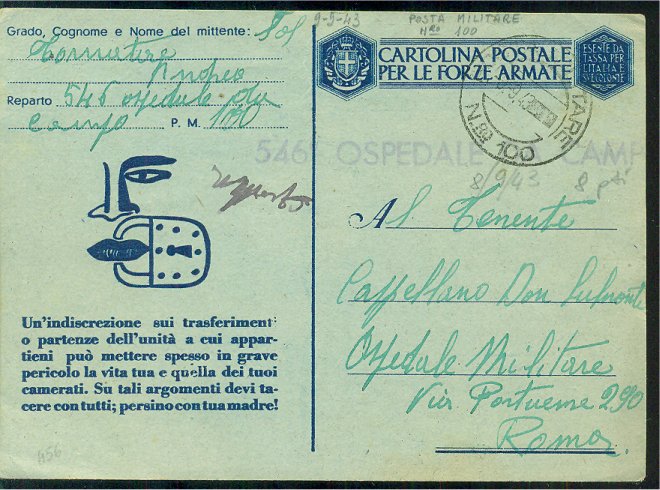 9-9-43
POSTA MILITARE
Nro 100
Grado, Cognome e Nome del mittente: Sol
Reparto 546 Ospedale da
Campo P. M. 100
CARTOLINA POSTALE
PER LE FORZE ARMATE
ESENTE DA
TASSA PER
L'ITALIA E
SUE COLONIE
N. 100
546° OSPEDALE CAMP
8/9/43 8 pti
Al Tenente
Cappellano Don
Ospedale Militare
Via Portuense 290
Roma
Un'indiscrezione sui trasferimenti
o partenze dell'unità a cui appar-
tieni può mettere spesso in grave
pericolo la vita tua e quella dei tuoi
camerati. Su tali argomenti devi ta-
cere con tutti; persino con tua madre!
456